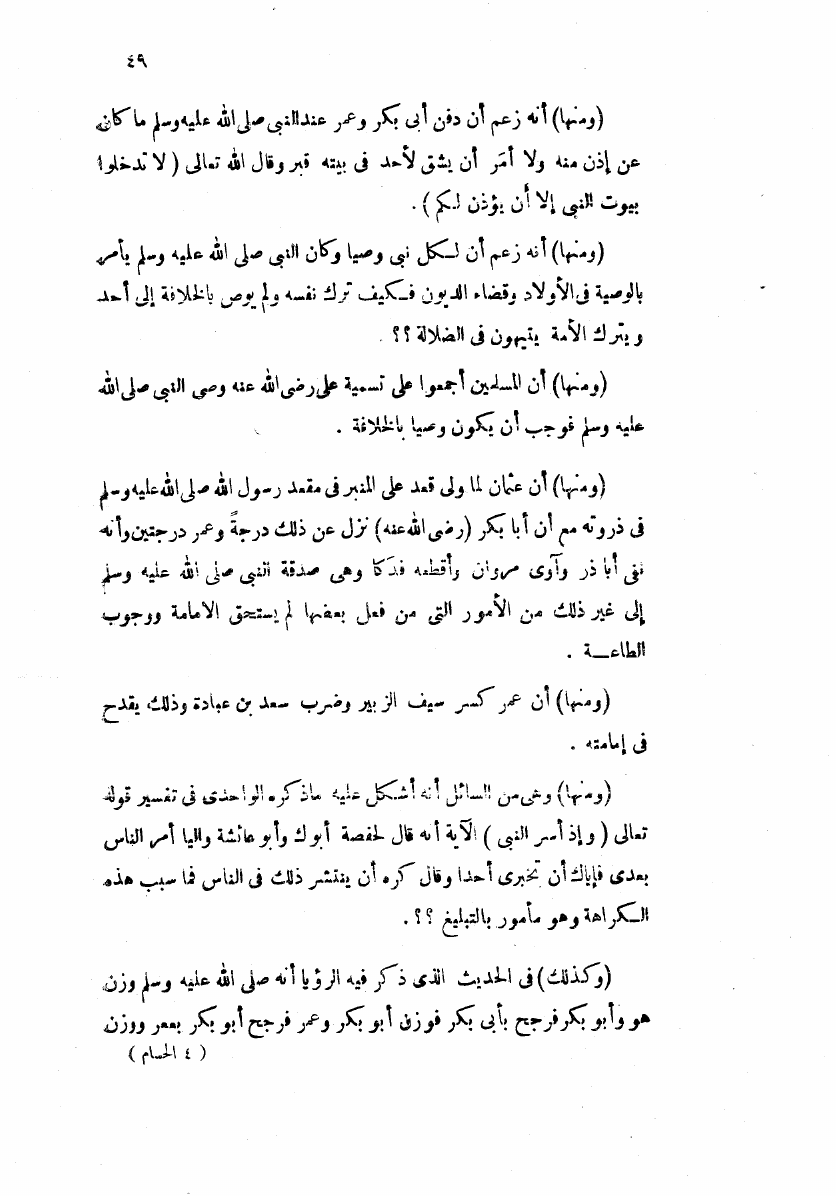 ٤٩
(ومنها) أنه زعم أن دفن أبى بكر وعمر عند النبى صلى الله عليه وسلم ما كان
عن إذن منه ولا أمر أن يشق لأحد فى بيته قبر وقال الله تعالى (لا تدخلوا
بيوت النبى إلا أن يؤذن لكم).
(ومنها) أنه زعم أن لكل نبى وصيا وكان النبى صلى الله عليه وسلم يأمر
بالوصية فى الأولاد وقضاء الديون فكيف ترك نفسه ولم يوص بالخلافة إلى أحد
ويترك الأمة يتيهون فى الضلالة ؟؟ .
(ومنها) أن المسلمين أجمعوا على تسمية على رضى الله عنه وصى النبى صلى الله
عليه وسلم فوجب أن يكون وصيا بالخلافة .
(ومنها) أن عثمان لما ولى قعد على المنبر فى مقعد رسول الله صلى الله عليه وسلم
فى ذروته مع أن أبا بكر (رضى الله عنه) نزل عن ذلك درجةً وعمر درجتين وأنه
نفى أبا ذر وآوى مروان وأقطعه فدكا وهى صدقة النبى صلى الله عليه وسلم
إلى غير ذلك من الأمور التى من فعل بعضها لم يستحق الامامة ووجوب
الطاعــة .
(ومنها) أن عمر كسر سيف الزبير وضرب سعد بن عبادة وذلك يقدح
فى إمامته .
(ومنها) وهى من السائل أنه أشكل عليه ماذكره الواحدى فى تفسير قوله
تعالى (وإذ أسر النبى) الآية أنه قال لحفصة أبوك وأبو عائشة واليا أمر الناس
بعدى فإياك أن تخبرى أحدا وقال كره أن ينتشر ذلك فى الناس فما سبب هذه
الكراهة وهو مأمور بالتبليغ ؟؟ .
(وكذلك) فى الحديث الذى ذكر فيه الرؤيا أنه صلى الله عليه وسلم وزن
هو وأبو بكر فرجح بأبى بكر فوزن أبو بكر وعمر فرجح أبو بكر بعمر ووزن
( ٤ الحسام )